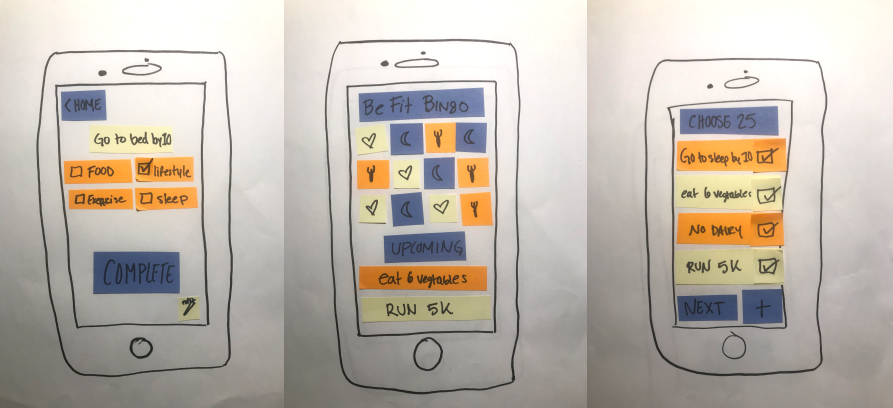 < HOME
Go to bed by 10
FOOD
lifestyle
Exercise
sleep
COMPLETE
Be Fit Bingo
UPCOMING
eat 6 vegtables
RUN 5K
CHOOSE 25
Go to sleep by 10
eat 6 vegetables
NO DAIRY
RUN 5K
NEXT +